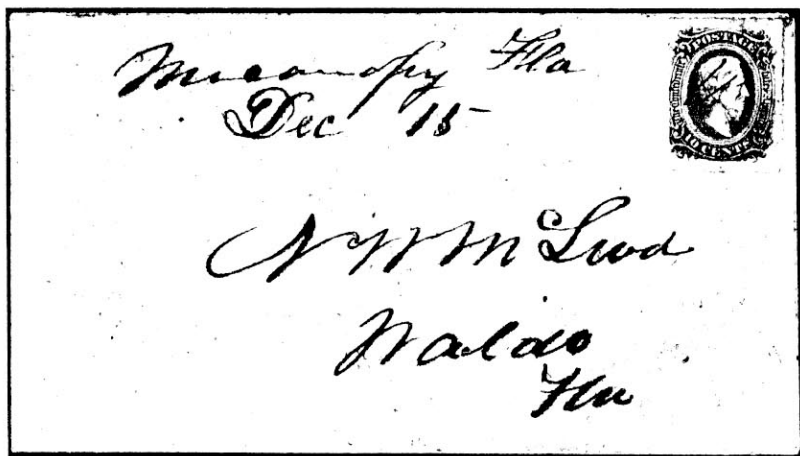 Micanopy Fla
Dec 15
POSTAGE
N W McLeod
Waldo
Fla